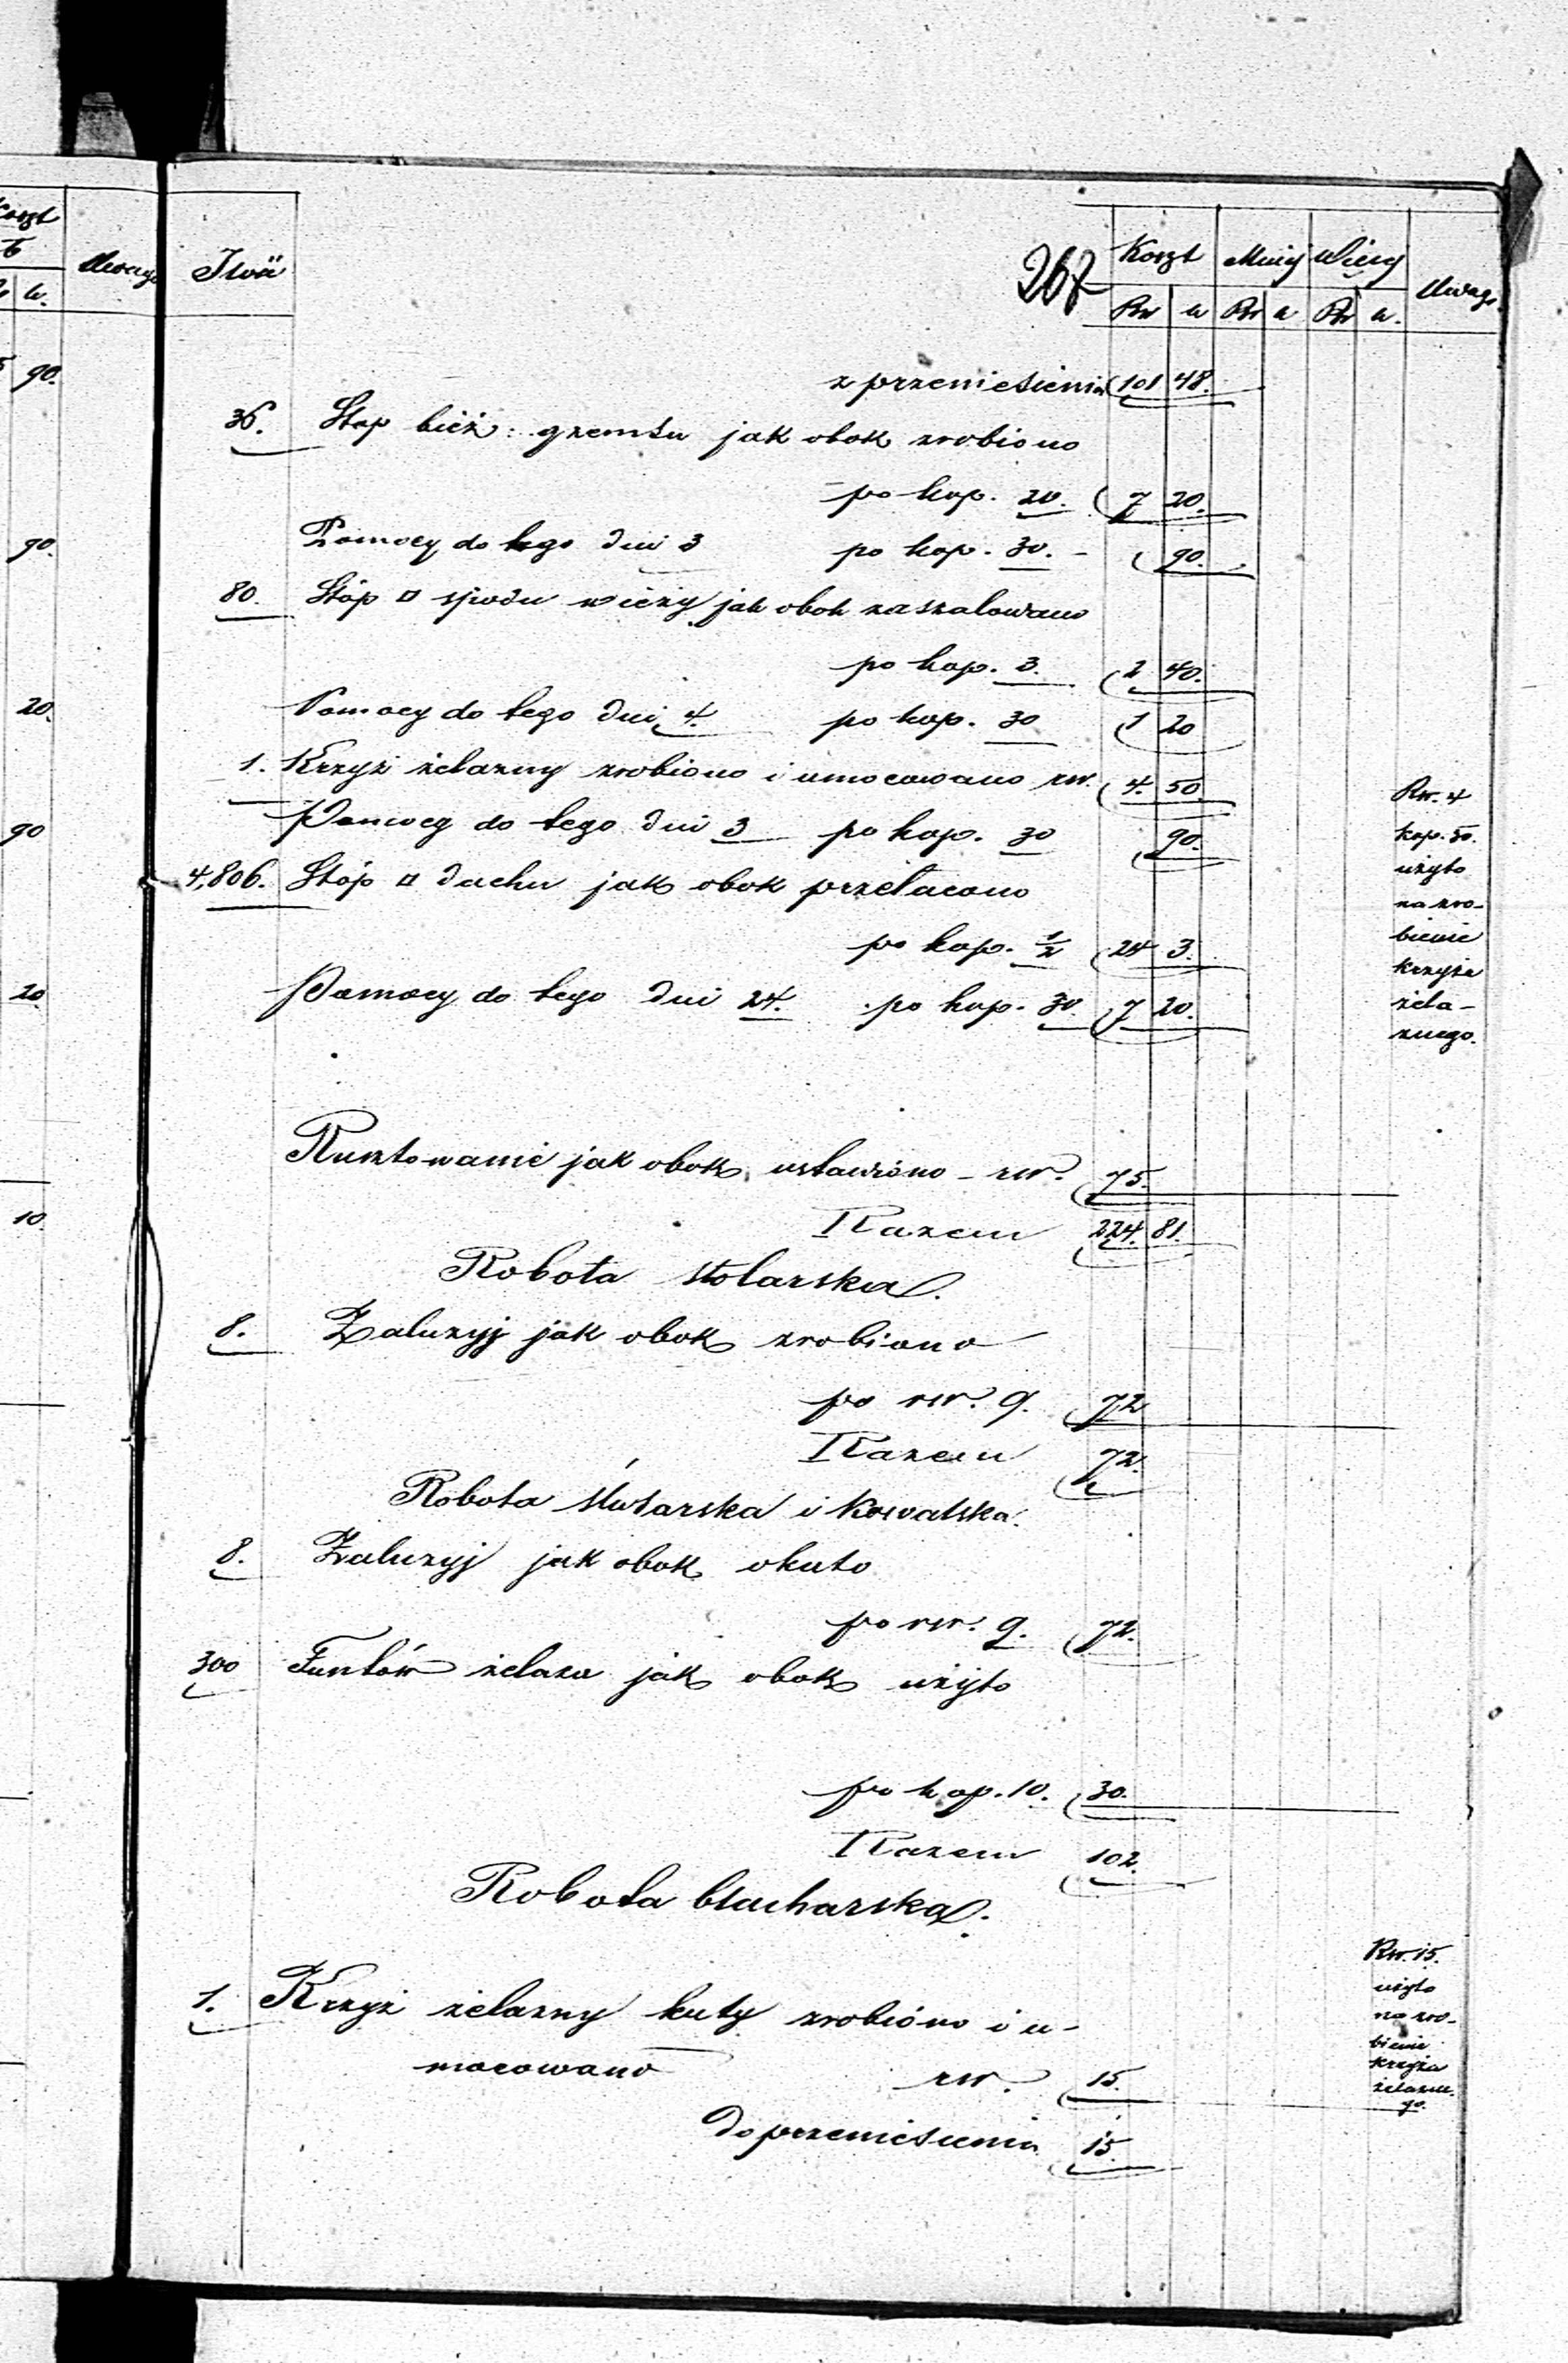 Koszt
Uwaga
k.
90.
90.
20.
90
20.
10.
Ilość
267
Koszt Mniej Więcej Uwaga
Rsr k Rsr k Rsr k.
z przeniesienia 101 48.
36. Stop bież: gzemsu jak obok zrobiono
po kop. 20. 7 20.
Pomocy do tego dni 3 po kop. 30. - 90.
80. Stóp □ spodu wieży jak obok zaszalowano
po kop. 3. 2 40.
Pomocy do tego dni 4. po kop. 30 1 20
1. Krzyż żelazny zrobiono i umocowano rsr. 4. 50.
Pomocy do tego dni 3 po kop. 30 90.
4,806. Stóp □ dachu jak obok przełacono
po kop. ½ 24 3.
Pomocy do tego dni 24. po kop. 30. 7 20.
Rsr. 4
kop. 50.
użyto
na zro-
bienie
krzyża
żela-
znego.
Rusztowanie jak obok ustawiono - rsr. 75.
Razem 224. 81.
Robota stolarska.
8. Żaluzyj jak obok zrobiono
po rsr. 9. 72
Razem 72.
Robota ślusarska i kowalska.
8. Żaluzyj jak obok okuto
po rsr. 9. 72.
300 Funtów żelaza jak obok użyto
po kop. 10. 30.
Razem 102.
Robota blacharska.
1. Krzyż żelazny kuty zrobiono i u-
mocowano rsr. 15.
do przeniesienia 15.
Rsr. 15.
użyto
na zro-
bienie
krzyża
żelazne-
go.